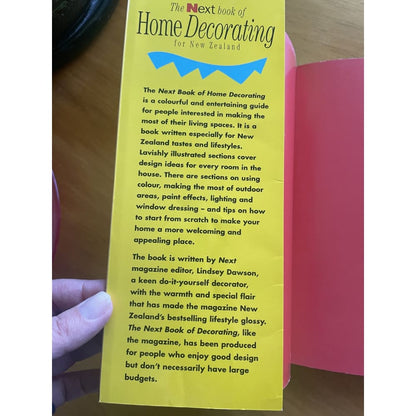 The Next book of
Home Decorating
for New Zealand
The Next Book of Home Decorating
is a colourful and entertaining guide
for people interested in making the
most of their living spaces. It is a
book written especially for New
Zealand tastes and lifestyles.
Lavishly illustrated sections cover
design ideas for every room in the
house. There are sections on using
colour, making the most of outdoor
areas, paint effects, lighting and
window dressing – and tips on how
to start from scratch to make your
home a more welcoming and
appealing place.
The book is written by Next
magazine editor, Lindsey Dawson,
a keen do-it-yourself decorator,
with the warmth and special flair
that has made the magazine New
Zealand's bestselling lifestyle glossy.
The Next Book of Decorating, like
the magazine, has been produced
for people who enjoy good design
but don't necessarily have large
budgets.